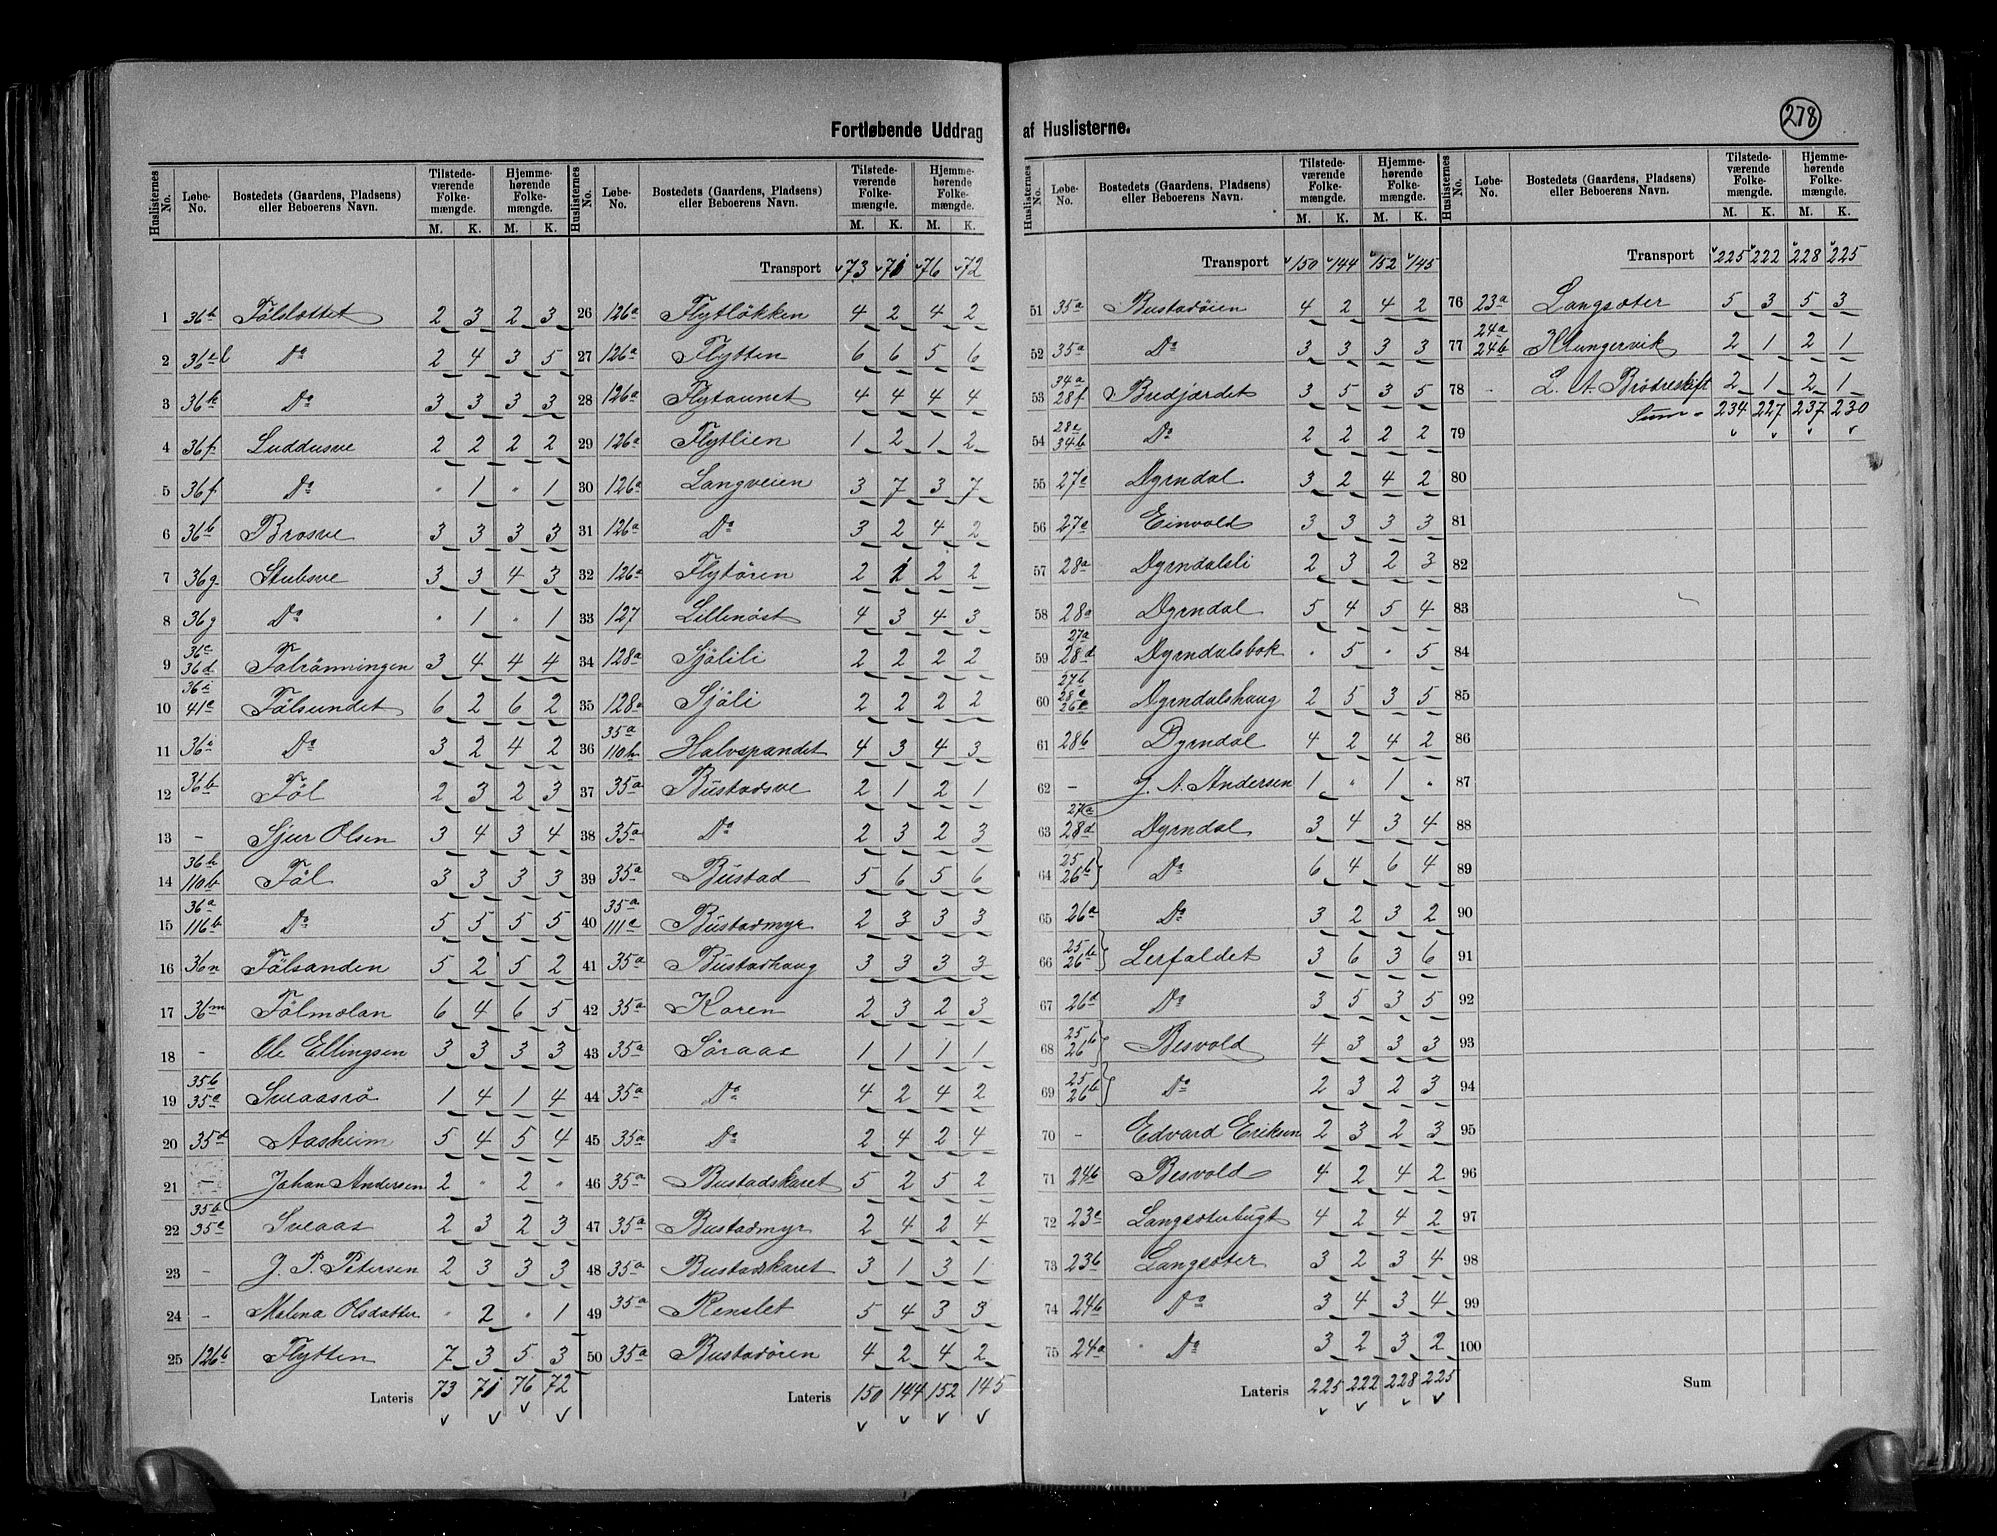 278
Fortløbende Uddrag af Huslisterne.
Huslisternes No. Løbe-No. Bostedets (Gaardens, Pladsens) eller Beboerens Navn. Tilstedeværende Folkemængde. M. K. Hjemmehørende Folkemængde. M. K.
1 36b Fölslottet 2 3 2 3
2 36el Do 2 4 3 5
3 36k Do 3 3 3 3
4 36f Luddusve 2 2 2 2
5 36f Do " 1 " 1
6 36b Brosve 3 3 3 3
7 36g Stubsve 3 3 4 3
8 36g Do " 1 " 1
9 36c 36d Følrönningen 3 4 4 4
10 36i 41e Fölsundet 6 2 6 2
11 36i Do 3 2 4 2
12 36b Föl 2 3 2 3
13 – Sjur Olsen 3 4 3 4
14 36h 110b Föl 3 3 3 3
15 36a 116b Do 5 5 5 5
16 36n Fölsanden 5 2 5 2
17 36m Fölmolan 6 4 6 5
18 – Ole Ellingsen 3 3 3 3
19 35b 35e Sveaasrö 1 4 1 4
20 35d Aasheim 5 4 5 4
21 – Johan Andersen 2 " 2 "
22 35b 35e Sveaas 2 3 2 3
23 – J. P. Petersen 2 3 3 3
24 – Malina Olsdatter " 2 " 1
25 126b Flytten 7 3 5 3
Lateris 73 71 76 72
Huslisternes No. Løbe-No. Bostedets (Gaardens, Pladsens) eller Beboerens Navn. Tilstedeværende Folkemængde. M. K. Hjemmehørende Folkemængde. M. K.
Transport 73 71 76 72
26 126a Flytløkken 4 2 4 2
27 126a Flytten 6 6 5 6
28 126a Flytaunet 4 4 4 4
29 126a Flytlien 1 2 1 2
30 126a Langveien 3 7 3 7
31 126a Do 3 2 4 2
32 126a Flytören 2 1 2 2
33 127 Lillenöst 4 3 4 3
34 128a Sjölili 2 2 2 2
35 128a Sjöli 2 2 2 2
36 35a 110b Halvspandet 4 3 4 3
37 35a Bustadsve 2 1 2 1
38 35a Do 2 3 2 3
39 35a Bustad 5 6 5 6
40 35a 111c Bustadmyr 2 3 3 3
41 35a Bustadhaug 3 3 3 3
42 35a Karen 2 3 2 3
43 35a Söraas 1 1 1 1
44 35a Do 4 2 4 2
45 35a Do 2 4 2 4
46 35a Bustadskaret 5 2 5 2
47 35a Bustadmyr 2 4 2 4
48 35a Bustadskaret 3 1 3 1
49 35a Renslet 5 4 3 3
50 35a Bustadöien 4 2 4 2
Lateris 150 144 152 145
Huslisternes No. Løbe-No. Bostedets (Gaardens, Pladsens) eller Beboerens Navn. Tilstedeværende Folkemængde. M. K. Hjemmehørende Folkemængde. M. K.
Transport 150 144 152 145
51 35a Bustadöien 4 2 4 2
52 35a Do 3 3 3 3
53 34a 28f Bredjordet 3 5 3 5
54 28e 34b Do 2 2 2 2
55 27c Dyrndal 3 2 4 2
56 27e Einvold 3 3 3 3
57 28a Dyrndalsli 2 3 2 3
58 28a Dyrndal 5 4 5 4
59 27a 28d Dyrndalsbok " 5 " 5
60 27b 28c 26e Dyrndalshaug 2 5 3 5
61 28b Dyrndal 4 2 4 2
62 – J. A. Andersen 1 " 1 "
63 27a 28d Dyrndal 3 4 3 4
64 25 26b Do 6 4 6 4
65 26a Do 3 2 3 2
66 25 26b Lerfaldet 3 6 3 6
67 26d Do 3 5 3 5
68 25 26b Besvold 4 3 3 3
69 25 26b Do 2 3 2 3
70 – Edvard Eriksen 2 3 2 3
71 24b Besvold 4 2 4 2
72 23c Langsøterbugt 4 2 4 2
73 23b Langsøter 3 2 3 4
74 24b Do 3 4 3 4
75 24a Do 3 2 3 2
Lateris 225 222 228 225
Huslisternes No. Løbe-No. Bostedets (Gaardens, Pladsens) eller Beboerens Navn. Tilstedeværende Folkemængde. M. K. Hjemmehørende Folkemængde. M. K.
Transport 225 222 228 225
76 23a Langsøter 5 3 5 3
77 24a 24b Hungervik 2 1 2 1
78 – L. A. Brödreskift 2 1 2 1
Sum = 234 227 237 230
79
80
81
82
83
84
85
86
87
88
89
90
91
92
93
94
95
96
97
98
99
100
Sum